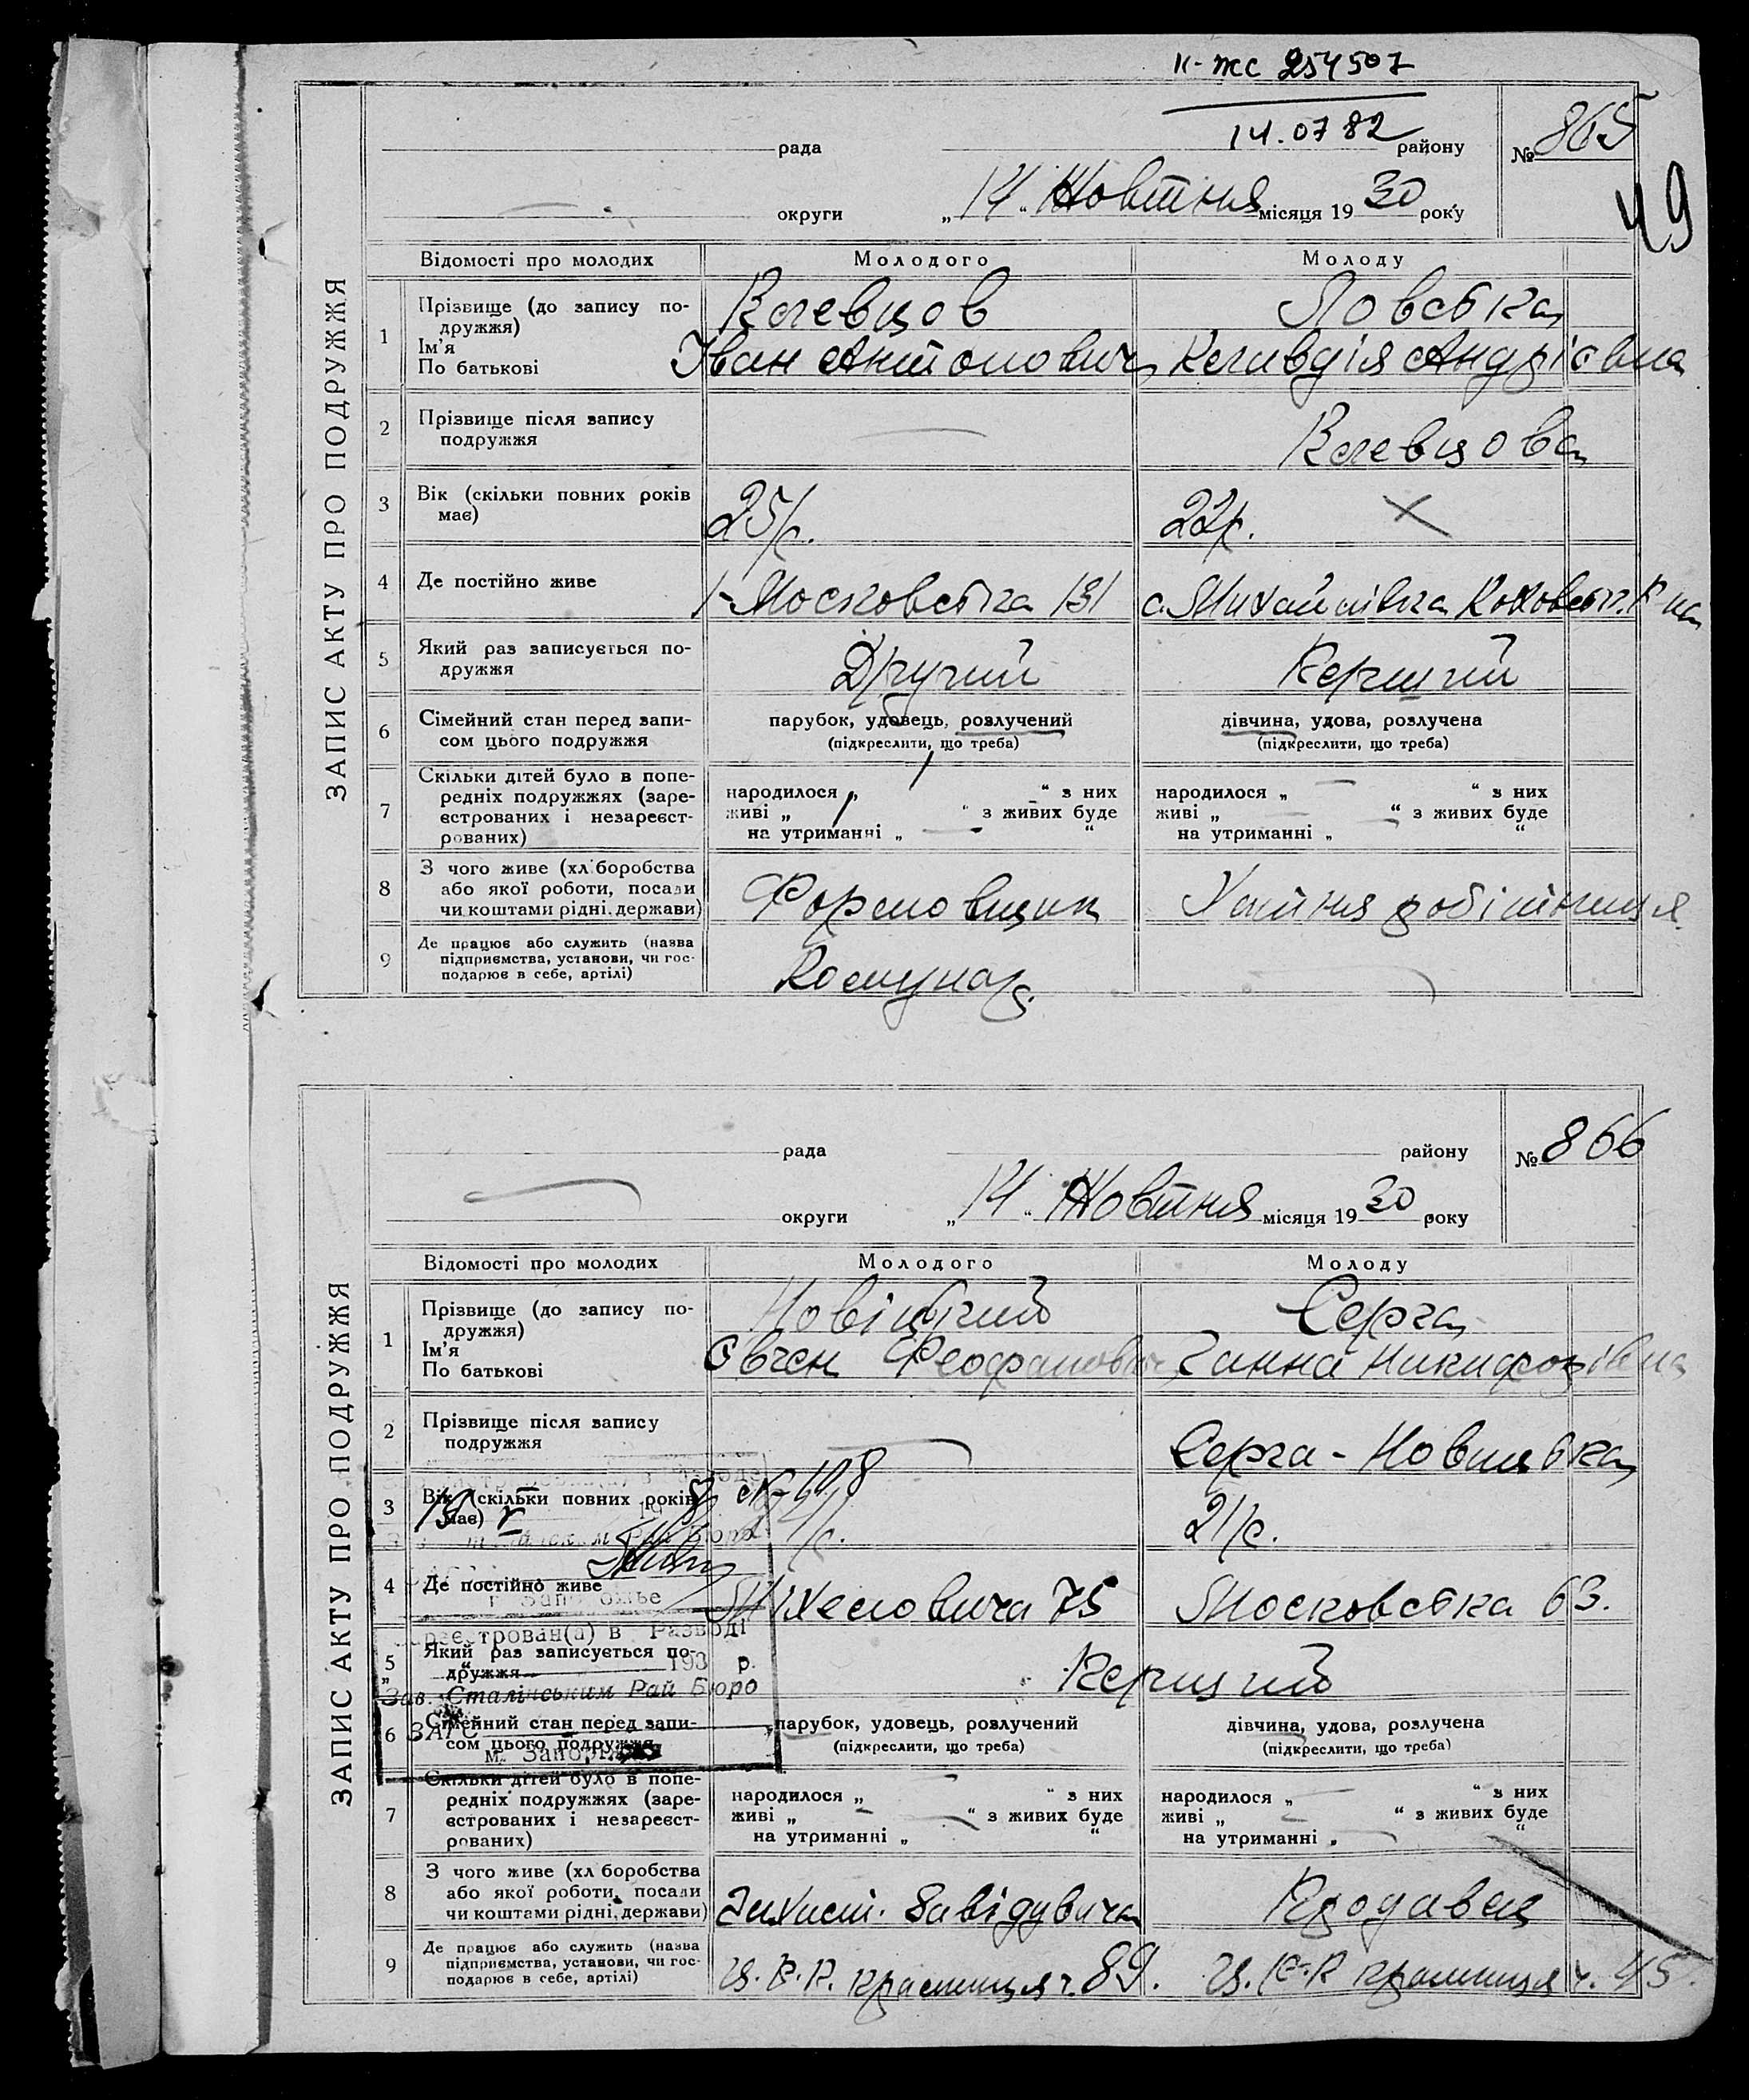 к-жс 254507
14.07 82
рада району № 865
49
округи „14“ Жовтня місяця 1930 року
ЗАПИС АКТУ ПРО ПОДРУЖЖЯ
Відомості про молодих Молодого Молоду
1 Прізвище (до запису подружжя)
Ім'я
По батькові
Іван Антонович Клавдія Андріївна
2 Прізвище після запису
подружжя
3 Вік (скільки повних років
має)
25/р. 22р.
4 Де постійно живе Московська 131 с. Михайлівка
5 Який раз записується по-
дружжя
Другий Перший
6 Сімейний стан перед запи-
сом цього подружжя
парубок, удовець, розлучений дівчина, удова, розлучена
(підкреслити, що треба) (підкреслити, що треба)
7 Скільки дітей було в попе-
редніх подружжях (заре-
єстрованих і незареєст-
рованих)
народилося „ “ з них народилося „ “ з них
живі „ “ з живих буде живі „ “ з живих буде
на утриманні „ “ на утриманні „ “
8 З чого живе (хл боробства
або якої роботи, посади
чи коштами рідні, держави)
Формовщик Хатня робітниця
9 Де працює або служить (назва
підприємства, установи, чи гос-
подарює в себе, артілі)
Комунар
рада району № 866
округи „14“ Жовтня місяця 1930 року
ЗАПИС АКТУ ПРО ПОДРУЖЖЯ
Відомості про молодих Молодого Молоду
1 Прізвище (до запису по-
дружжя)
Ім'я
По батькові
Новіцький Серга
Євген Феофанович Ганна Никифорівна
2 Прізвище після запису
подружжя
Серга-Новицька
3 Вік (скільки повних років
має)
21/р.
4 Де постійно живе 75 Московська 63.
5 Який раз записується по-
дружжя
Перший
Зареєстрован(а) в Разводі
193 р.
Зав. Сталінським Рай Бюро
ЗАГС
м. Запоріжжя
6 Сімейний стан перед запи-
сом цього подружжя
парубок, удовець, розлучений дівчина, удова, розлучена
(підкреслити, що треба) (підкреслити, що треба)
7 Скільки дітей було в попе-
редніх подружжях (заре-
єстрованих і незареєст-
рованих)
народилося „ “ з них народилося „ “ з них
живі „ “ з живих буде живі „ “ з живих буде
на утриманні „ “ на утриманні „ “
8 З чого живе (хл боробства
або якої роботи, посади
чи коштами рідні, держави)
Завідувача Продавец
9 Де працює або служить (назва
підприємства, установи, чи гос-
подарює в себе, артілі)
Ц.Р.К. крамниця ч. 89. Ц.Р.К крамниця ч. 45.